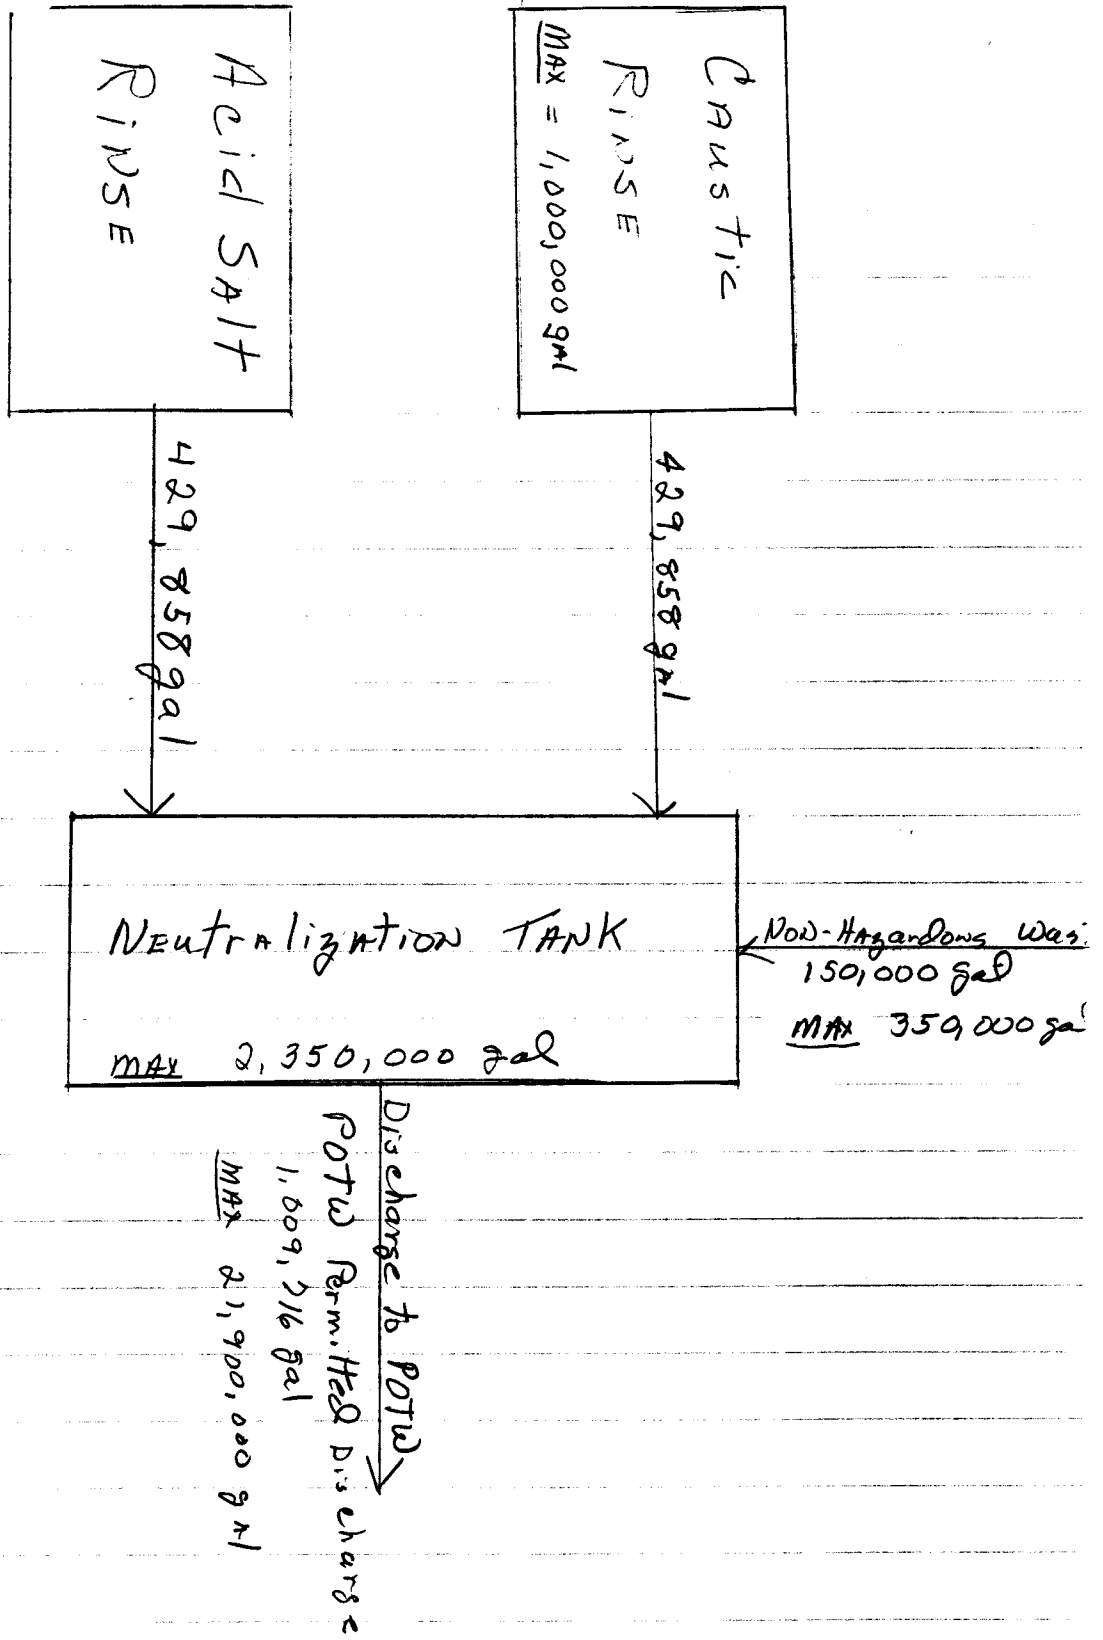 Caustic
Rinse
MAX = 1,000,000 gal
Acid Salt
Rinse
429,858 gal
429,858 gal
Neutralization Tank
MAX 2,350,000 gal
Non-Hazardous Was
150,000 gal
MAX 350,000 ga
Discharge to POTW
POTW Permitted Discharge
1,009,716 gal
MAX 21,900,000 gal